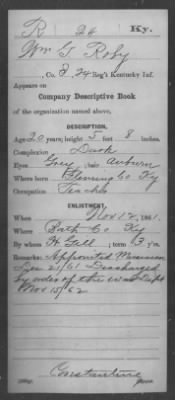 R 24 Ky.
Wm G. Roby
, Co. , 24 Reg't Kentucky Inf.
Appears on
Company Descriptive Book
of the organization named above.
DESCRIPTION.
Age 20 years; height 5 feet 8 inches.
Complexion Dark
Eyes Grey; hair Auburn
Where born Fleming Co Ky
Occupation Teacher
ENLISTMENT.
When Nov 12, 1861.
Where Bath Co Ky
By whom H Gill; term 3 y'rs.
Remarks: Appointed Musician
21/61 Discharged
by order of the War Dept
Nov 15/62
Constantine
Copyist.